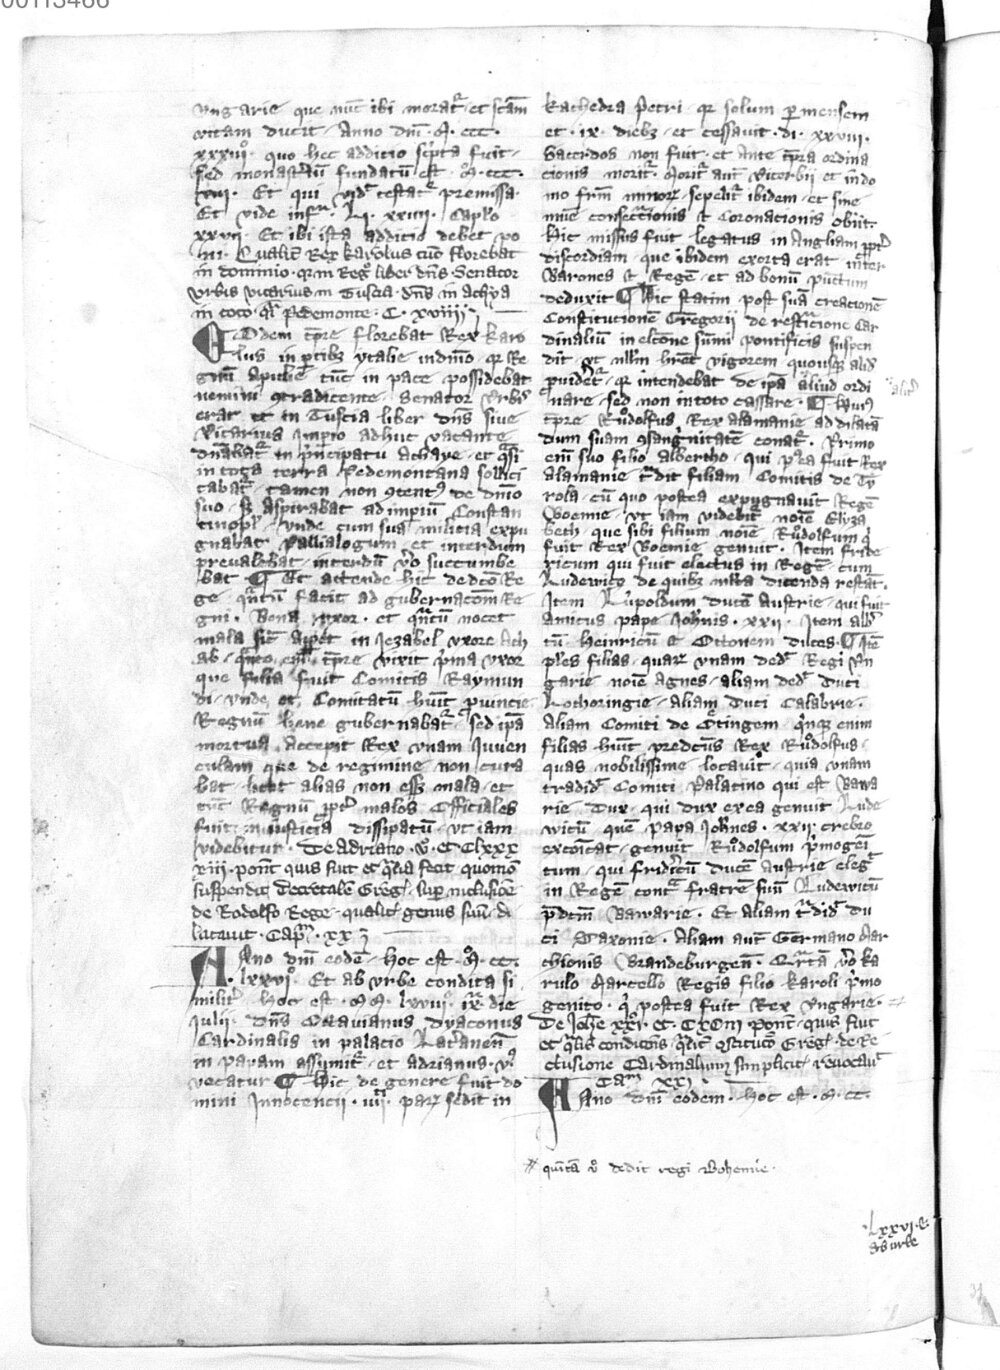 00113466
vngarie que nūc ibi morat᷑ et scām
vitam ducit. Anno dm̄. M. ccc.
xxxiiiº. quo hec additio scp̄ta fuit.
sed monast᷑iū fundatū est Mº. ccc.
Et qui vid᷑ testat᷑ premissa.
Et vide inf᷑. Li. xxiiii. Cap̄lo
xxvii. Et ibi ista additio debet po
ni. Qualit᷑ Rex karolus tūc florebat
in dominio. q᷑ in Reg᷑ liber dn̄s. Senator
vrbis vicarius in Tuscia. dn̄s in achya
in toto. q̄i Pedemonte. C. xviiii
Eodem tp̄re florebat Rex karo
lus in ptibꝫ ytalie in dn̄io. q᷑ Re
gnū apulie tūc in pace possidebat
nemini ꝯtradicente. Senator vrbis
erat et in Tuscia liber dn̄s siue
vicarius Imp̄io adhuc vacante
dn̄abat᷑ in p̄ncipatu achaye. et q̄si
in tota terra Pedemontana sollici
tabat᷑. tamen non ꝯtentꝰ de dn̄io
suo. sꝫ aspirabat ad impiū Constan
tinopl᷑. vnde cum sua milicia expu
gnabat Pallialogum. et interdum
preualebat. interdū vo succumbe
bat. Et attende hic de dco Re
ge. q̄ntū facit ad gubernacōm Re
gni. Bona vxor. et q̄ntū nocet
mala sic̄ app̄et in Jezabel vxore Ach
ab. tp̄re vixit p̄ma vxor
que filia fuit Comitis Raymun
di. vnde et Comitatū huit puincie
Regnū bene gubernabat᷑. sed ip̄a
mortua. Accepit Rex vnam Juuen
culam que de regimine non cura
bat. licet alias non essꝫ mala. et
tūc Regnū pp̄t᷑ malos Officiales
fuit in iusticia dissipatū. vt iam
videbitur. De adriano. v. et Clxxx
xiii. pont᷑. quis fuit et q̄lia fecit quomō
suspendit decretale Greg᷑. sup inclusiōe
de Rodolfo Rege. qualit᷑ genus suū di
latauit. Cap̄m. xx
Anno dm̄ eodē. hoc est. Mº. cc.
lxxviº. Et ab vrbe condita si
milit᷑ hoc est. M M. ix᷑. die
Julij. dn̄s Octauianus dyaconus
Cardinalis in palacio Lat᷑anen̄
in papam assumit᷑. et adrianus. vꝰ
vocatur Hic de genere fuit do
mini Innocencii. iiii. parꝫ sedit in
kathedra Petri. q᷑ solum p mensem
et. ix. diebꝫ. et cessauit. di. xxviii.
Sacerdos non fuit. et Ante tp̄ra ordina
cionis morit᷑. Morit᷑ aut᷑ Viterbii et in do
mo frm̄ minorꝫ. sepelit᷑ ibidem. et sine
mūe consecrācionis & Coronacionis obiit.
Hic missus fuit legatus in Angliam pp̄t᷑
discordiam. que ibidem exorta erat inter
Barones & Regē. et ad bonū punctum
deduxit Hic statim post suā creacionē
Constitutionē Gregorii de restrictione Car
dinaliū in elcōne sūmi pontificis suspen
dit. vt nllm hrēt vigorem. quousqꝫ alid᷑
puider᷑. q᷑ intendebat de ip̄a aliud ordi
nare. sed non in toto cassare. Huiꝰ
tp̄re Rudolfus Rex alamanie ad dilatā
dum suam ꝯsang᷑nitatē conat᷑. Primo
eni suo filio alberto. qui pea fuit Rex
alamanie t᷑dit filiam Comitis de Ty
rola. cū quo postea expugnauit Regē
Boemie. vt iam videbit᷑ noīe Elyza
beth. que sibi filium noīe Rudolfum q̄
fuit Rex Boemie genuit. Item fride
ricum qui fuit electus in Regē. cum
Ludewico de quibꝫ mlta dicenda restāt.
Item Lupoldum ducē Austrie. qui fuit
amicus pape Johnis. xxii. Item alb᷑
tū. Heinricū & Ottonem duces. Itē
ples filias. quarꝫ vnam ded᷑ Regi Vn
garie noīe Agnes. aliam ded᷑ Duci
Lothoringie. Aliam Duci Calabrie.
Aliam Comiti de Otingem. q̄nqꝫ enim
filias huit predctūs Rex Rudolfus.
quas nobilissime locauit. quia vnam
tradid᷑ Comiti Palatino qui est Bawa
rie Dux. qui dux ex ea genuit Lude
wicū. quē Papa Johnes. xxii. crebro
excōicat. genuit Rudolfum p̄mogeī
tum. qui fridicū ducē Austrie eleg᷑
in Regē cont᷑ fratrē suū Ludewicū
p̄dctm̄ Bawarie. Et aliam t᷑did᷑ du
ci Saxonie. Aliam aut᷑ Germano Mar
chionis Brandeburgen̄. Q᷑rtā vo ka
rulo Marcello Regis filio karoli p̄mo
genito. q̄ postea fuit Rex Vngarie.
De Johe xxi. et. CXCIIII pont᷑. quis fuit
et q̄lis condicōis. q̄lit᷑ ꝯstitucō Greg᷑. de Re
clusione Cardinalium simplicit᷑ reuocauit
Cam̄ xxi
Anno dm̄ eodem. hoc est. M. cc.
quītā vo dedit regi Bohemie.
lxxvi. &
ab urbe